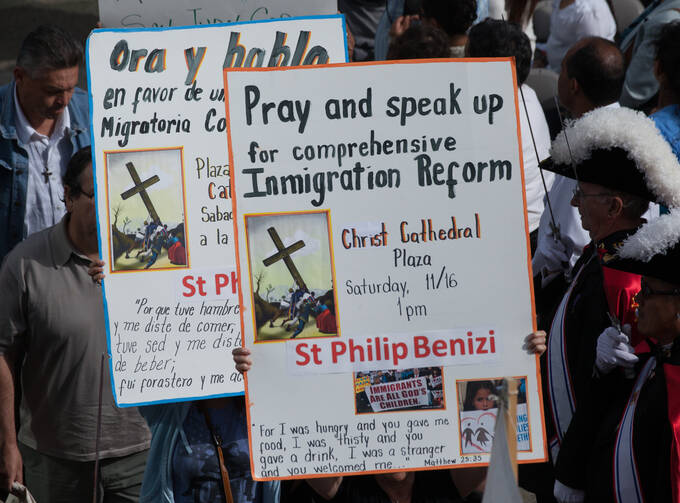 Ora y
en favor de un
Migratoria Co
Plaza
Ca
Sabad
a la
St Ph
"Por que tuve hambre
y me diste de comer,
tuve sed y me diste
de beber;
fui forastero y me
Pray and speak up
for comprehensive
Inmigration Reform
Christ Cathedral
Plaza
Saturday, 11/16
1pm
St Philip Benizi
IMMIGRANTS
ARE ALL GOD'S
CHILDREN.
"For I was hungry and you gave me
food, I was thisty and you
gave a drink, I was a stranger
and you welcomed me..." Matthew 25:35